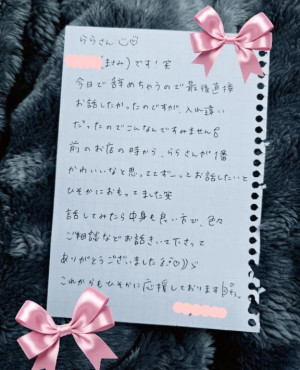 ららさん
(まさみ)です! 笑
今日で辞めちゃうので最後直接
お話したかったのですが、入れ違い
だったのでこんなんですみません
前のお店の時から、ららさんが1番
かわいいなと思っててずーっとお話したいと
ひそかにおもってました笑
話してみたら中身も良い方で、色々
ご相談などお話きいて下さって
ありがとうございました
これからもひそかに応援しております